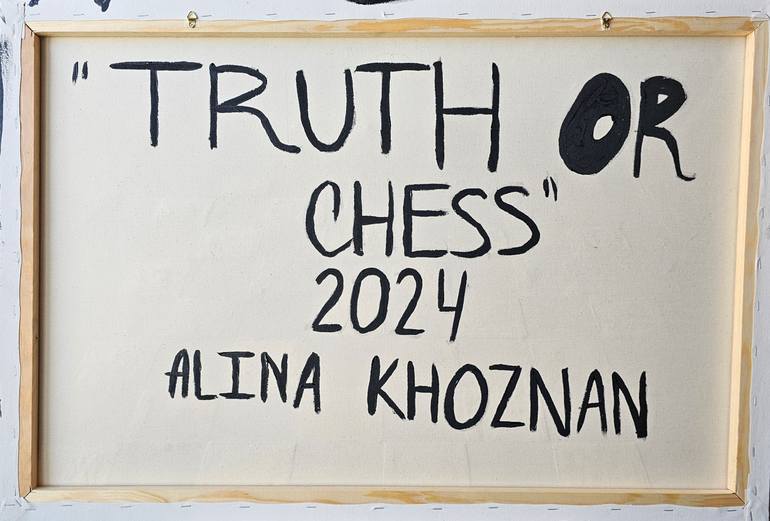 "TRUTH OR
CHESS"
2024
ALINA KHOZNAN